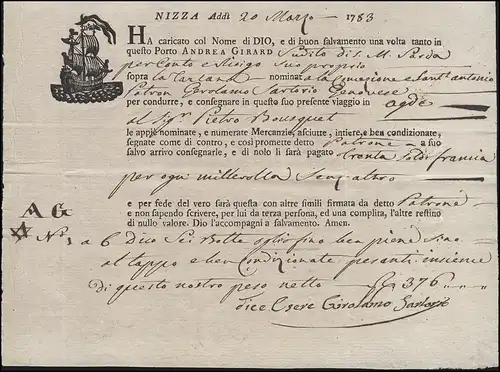 NIZZA Addì 20 Marzo 1783
HA caricato col Nome di DIO, e di buon salvamento una volta tanto in
questo Porto ANDREA GIRARD Sudito di S. M. Sarda
per Conto e Risigo Suo proprio
sopra la Tartana nominata la Concezione e Sant' Antonio
Patron Girolamo Sartorio Genovese
per condurre, e consegnare in questo suo presente viaggio in agde
al Sigr. Pietro Bousquet
le appiè nominate, e numerate Mercanzie, asciutte, intiere, e ben condizionate,
segnate come di contro, e così promette detto Patrone a suo
salvo arrivo consegnarle, e di nolo li sarà pagato trenta soldi francia
per ogni millerolla senz'altro
e per fede del vero sarà questa con altre simili firmata da detto Patrone
e non sapendo scrivere, per lui da terza persona, ed una complita, l'altre restino
di nullo valore. Dio l'accompagni a salvamento. Amen.
A G
N.° 1 a 6 dico Sei Botte oglio fino ben piene sino
al tappo e ben Condizionate pesanti insieme
di questo nostro peso netto 376
dice Esere Girolamo Sartorio